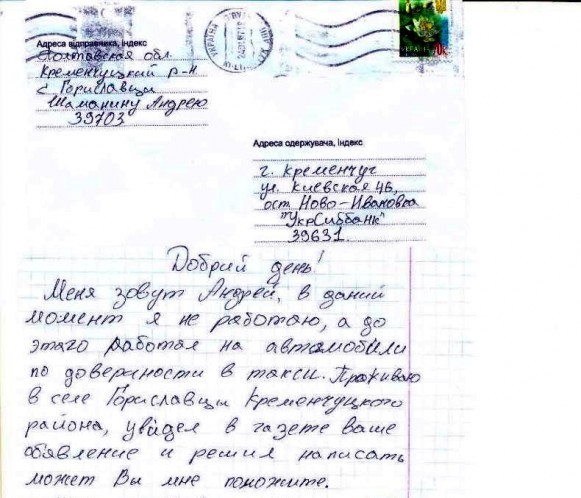 Адреса відправника, індекс
Полтавская обл.
Кременчуцкий р-н
с Гориславцы
Шаманину Андрею
39703
УКРАЇНА
УКРАЇНА
70к
Адреса одержувача, індекс
г. Кременчуг
ул. Киевская 4б,
ост Ново-Ивановка
"УкрСиббанк"
39631.
Добрий день!
Меня зовут Андрей, в даний
момент я не работаю, а до
этаго работал на автомобили
по доверности в такси. Проживаю
в селе Гориславцы Кременчуцкого
района, увидел в газете ваше
обявление и решил написать
может Вы мне поможите.